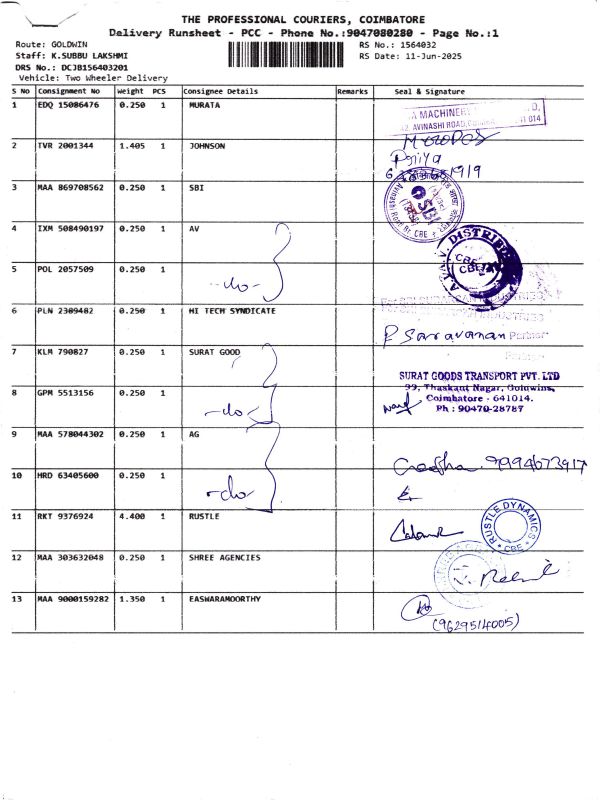 THE PROFESSIONAL COURIERS, COIMBATORE
Delivery Runsheet - PCC - Phone No.:9047080280 - Page No.:1
Route: GOLDWIN
Staff: K.SUBBU LAKSHMI
DRS No.: DCJB156403201
Vehicle: Two Wheeler Delivery
RS No.: 1564032
RS Date: 11-Jun-2025
S No Consignment No Weight PCS Consignee Details Remarks Seal & Signature
1 EDQ 15086476 0.250 1 MURATA
MACHINERY
AVINASHI ROAD,
2 TVR 2001344 1.405 1 JOHNSON
Priya
3 MAA 869708562 0.250 1 SBI
SBI
CBE
4 IXM 508490197 0.250 1 AV
A.V. DISTRIB
CBE
5 POL 2057509 0.250 1
-do-
6 PLN 2309482 0.250 1 HI TECH SYNDICATE
P Saravanan Partner
7 KLM 790827 0.250 1 SURAT GOOD
SURAT GOODS TRANSPORT PVT. LTD
99, Thaskant Nagar, Goldwins,
Coimbatore - 641014.
Ph : 90470-28787
8 GPM 5513156 0.250 1
-do-
9 MAA 578044302 0.250 1 AG
9994673917
10 HRD 63405600 0.250 1
-do-
11 RKT 9376924 4.400 1 RUSTLE
RUSTLE DYNAMICS
CBE
12 MAA 303632048 0.250 1 SHREE AGENCIES
13 MAA 9000159282 1.350 1 EASWARAMOORTHY
(9629514005)